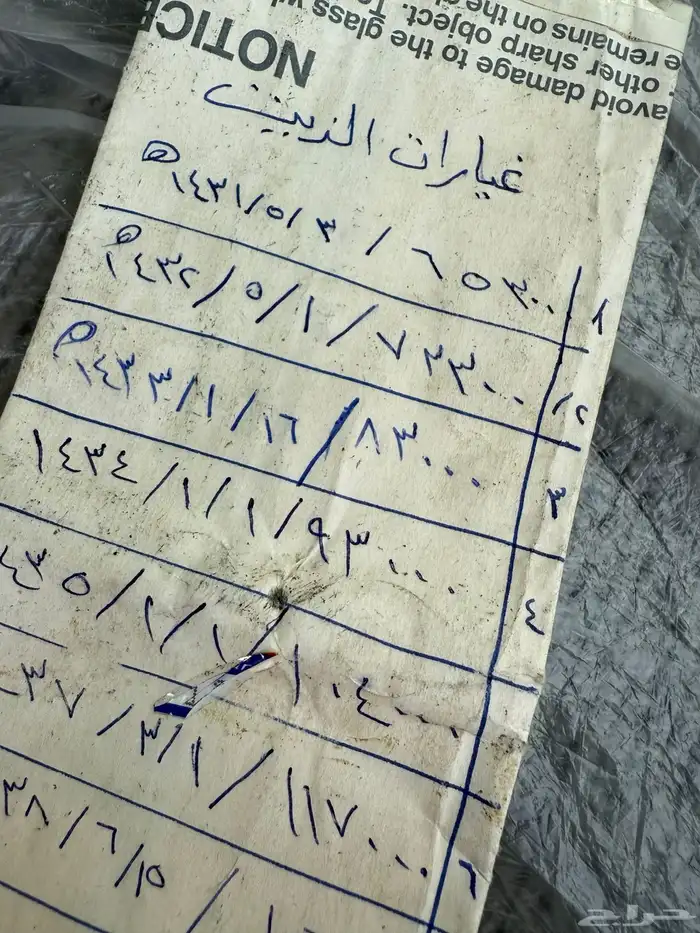 NOTICE
avoid damage to the glass
other sharp object. To
e remains on the
غيارات الزيت
١ / ٦٥٣٠٠ / ١٤٣١/٥/٣ هـ
٢ / ٧٣٠٠٠ / ١/٥/١٤٣٢ هـ
٣ ٨٣٠٠٠ / ١٦/١/١٤٣٣ هـ
٤ ٩٣٠٠٠ / ١/١/١٤٣٤
١٠٤٠٠٠ ١/١/٥٣٤
٦ ١١٧٠٠٠ / ١/٣/٣٨
١٥/٦/٣٧
حراج